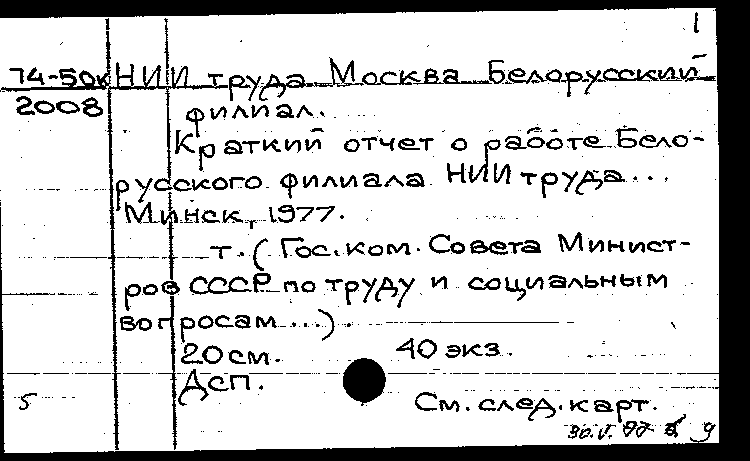 1
74-50к НИИ труда Москва Белорусский
2008 филиал.
Краткий отчет о работе Бело-
русского филиала НИИ труда...
Минск, 1977.
т. (Гос. ком. Совета Минист-
ров СССР по труду и социальным
вопросам...).
20 см. 40 экз.
Дсп.
5 См. след. карт.
30.V.77 9